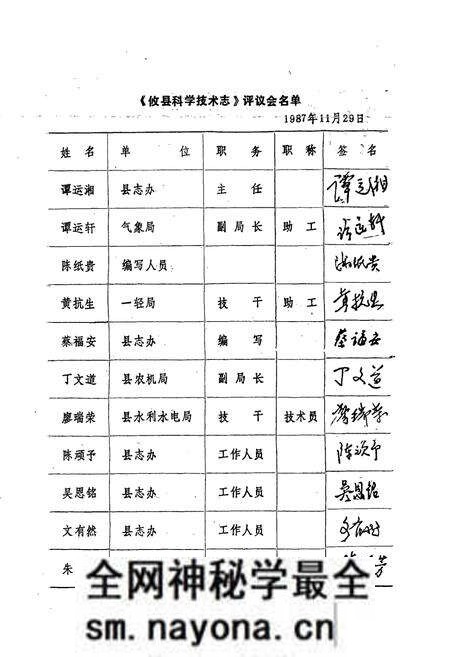 《攸县科学技术志》评议会名单
1987年11月29日
姓名 单位 职务 职称 签名
谭运湘 县志办 主任 谭运湘
谭运轩 气象局 副局长 助工
陈纸贵 编写人员
黄抗生 一轻局 技干 助工 黄抗生
蔡福安 县志办 编写 蔡福安
丁文道 县农机局 副局长 丁文道
廖瑞荣 县水利水电局 技干 技术员 廖瑞荣
陈顽予 县志办 工作人员
吴思铭 县志办 工作人员 吴思铭
文有然 县志办 工作人员
朱 芳
全网神秘学最全
sm.nayona.cn